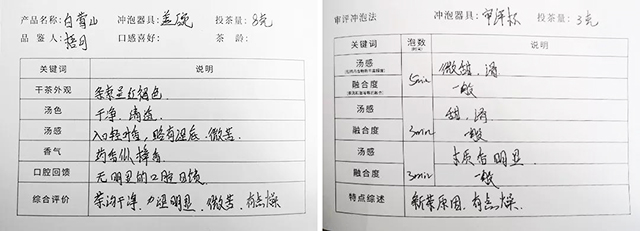 产品名称:白普山 冲泡器具:盖碗 投茶量:8克
品鉴人:悟月 口感喜好: 茶龄:
关键词 说明
干茶外观 条索呈红褐色
汤色 干净,清透
汤感 入口轻升香,略有湿底,微苦
香气 药香似樟香
口腔回馈 无明显的口腔回馈
综合评价 茶汤干净,力道明显,微苦,有点燥
审评冲泡法 冲泡器具:审评杯 投茶量:3克
关键词 泡数 说明
汤感 微甜,酒
5min
融合度 一般
汤感 甜,酒
融合度 3min 一般
汤感 木质香明显
融合度 3min 一般
特点综述 新茶原因,有点燥